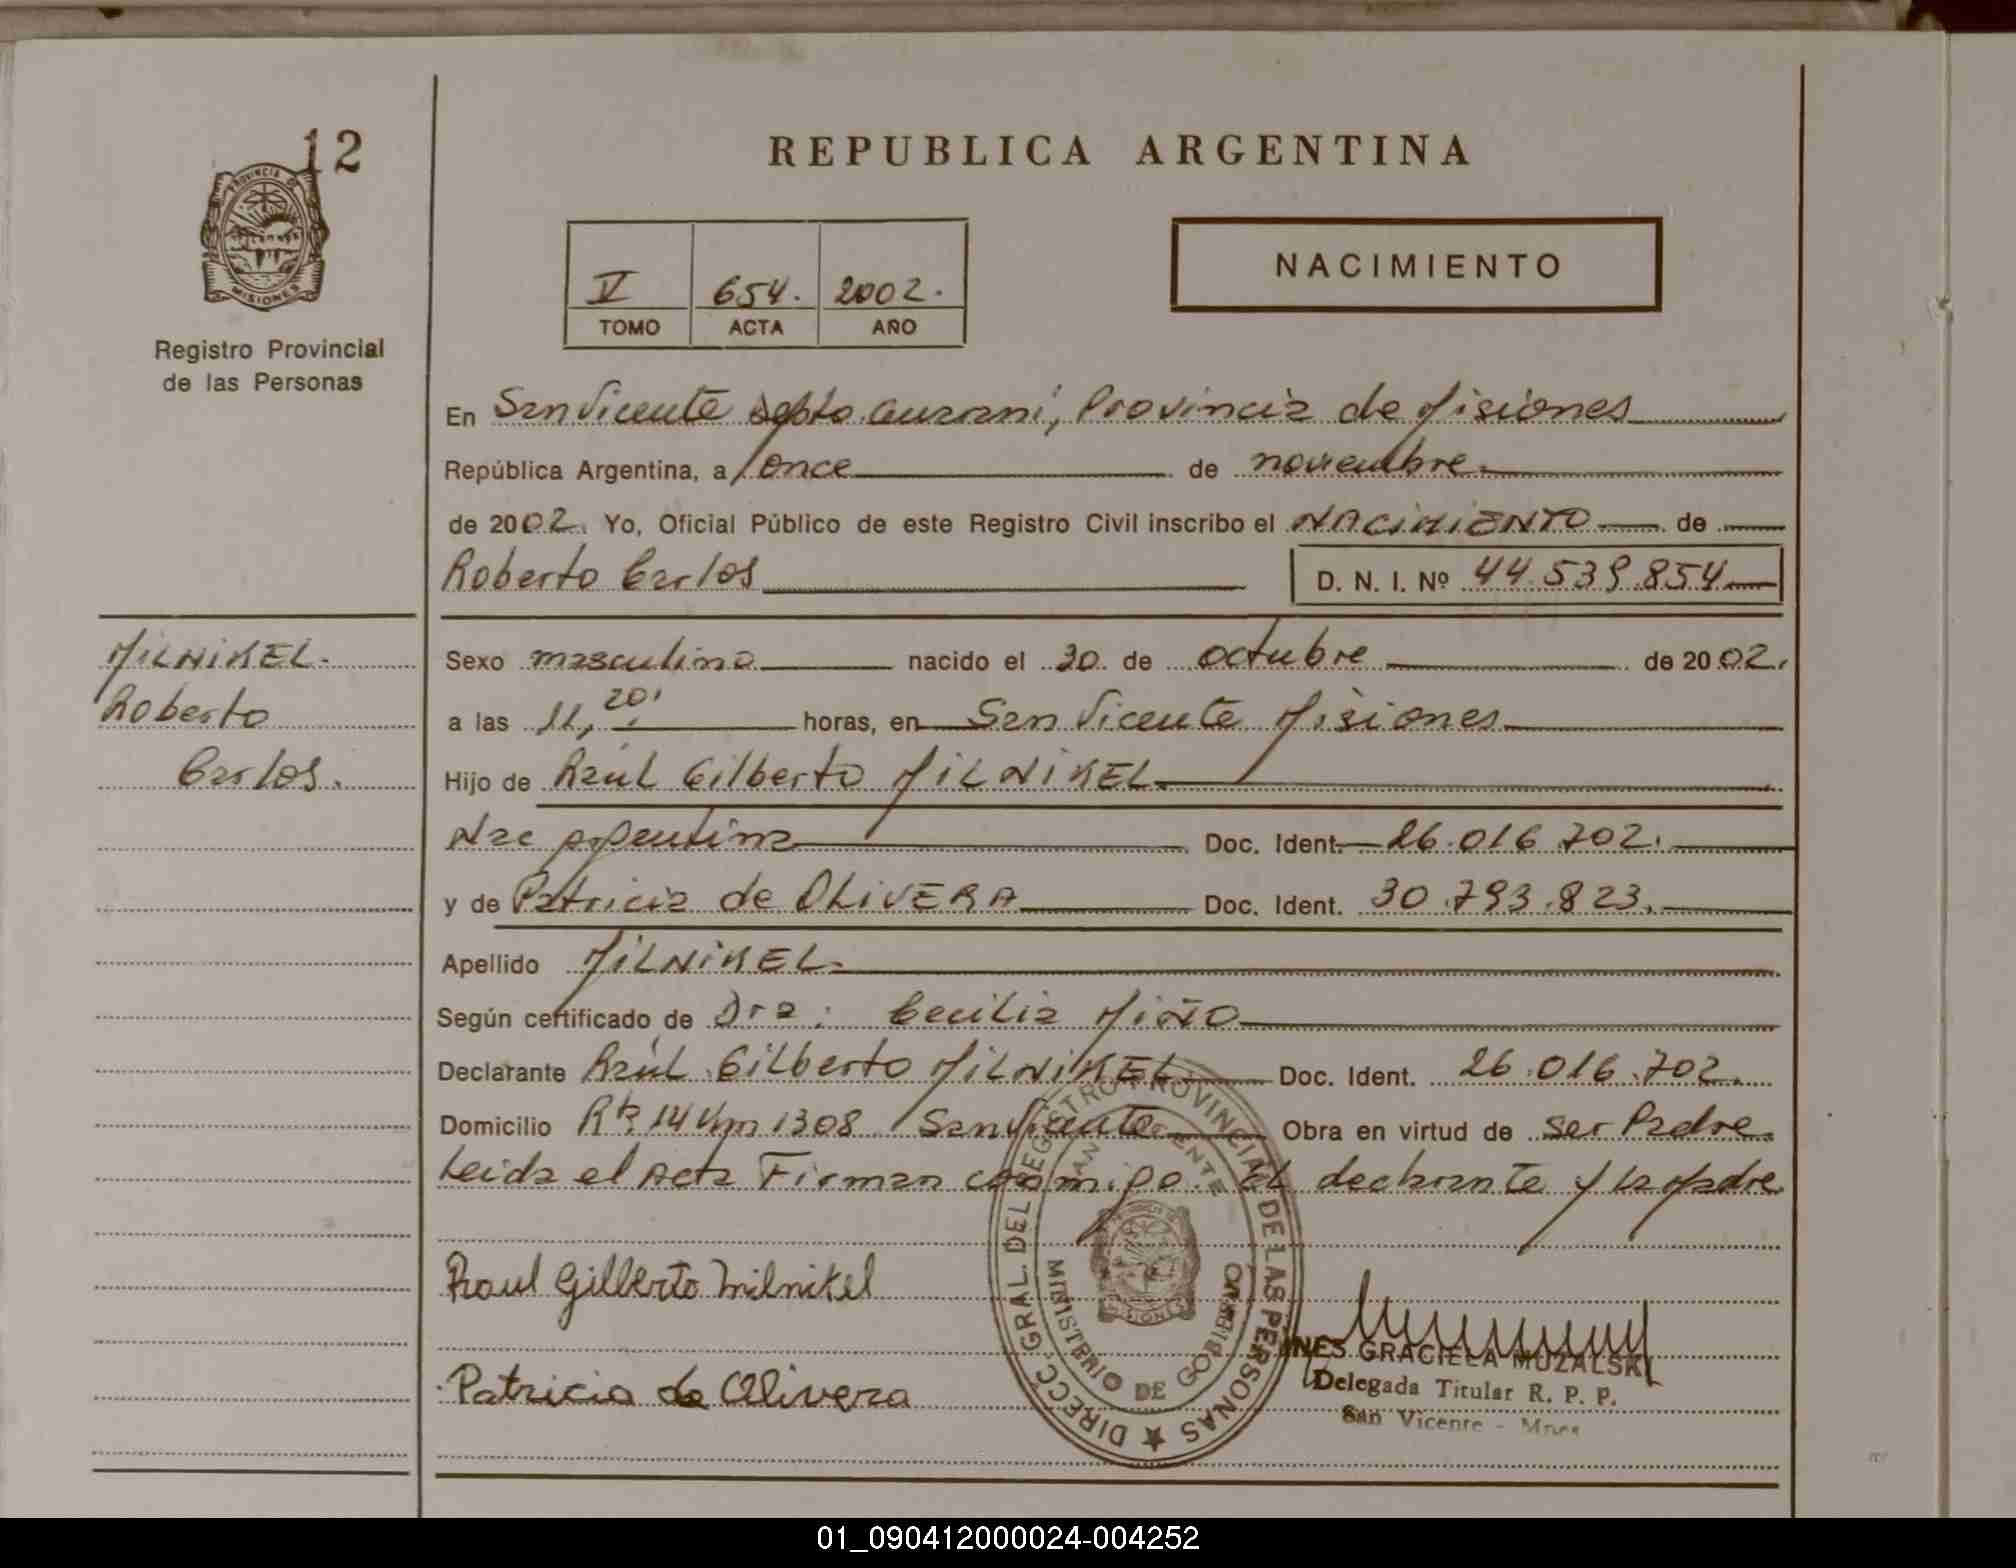 12
PROVINCIA DE
MISIONES
Registro Provincial
de las Personas
REPUBLICA ARGENTINA
V 654. 2002.
TOMO ACTA AÑO
NACIMIENTO
En San Vicente Depto. Guarani, Provincia de Misiones
República Argentina, a once de noviembre
de 2002. Yo, Oficial Público de este Registro Civil inscribo el NACIMIENTO de
Roberto Carlos D. N. I. Nº 44.539.854
MILNIKEL.
Roberto
Carlos.
Sexo masculino nacido el 30 de octubre de 2002.
a las 11,20' horas, en San Vicente Misiones
Hijo de Raúl Gilberto MILNIKEL
Nac argentina Doc. Ident. 26.016.702.
y de Patricia de OLIVERA Doc. Ident. 30.793.823.
Apellido MILNIKEL.
Según certificado de Dra: Cecilia Miño
Declarante Raúl Gilberto MILNIKEL Doc. Ident. 26.016.702.
Domicilio Rta. 14 Km 1308 San Vicente Obra en virtud de ser Padre.
Leida el Acta Firman conmigo. El declarante y la Madre
Raul Gilberto Milnikel
Patricia de Olivera
DIRECC. GRAL. DEL REGISTRO PROVINCIAL DE LAS PERSONAS
SAN VICENTE
MINISTERIO DE GOBIERNO
MISIONES
INES GRACIELA MUZALSKI
Delegada Titular R. P. P.
San Vicente - Mnes
01_090412000024-004252